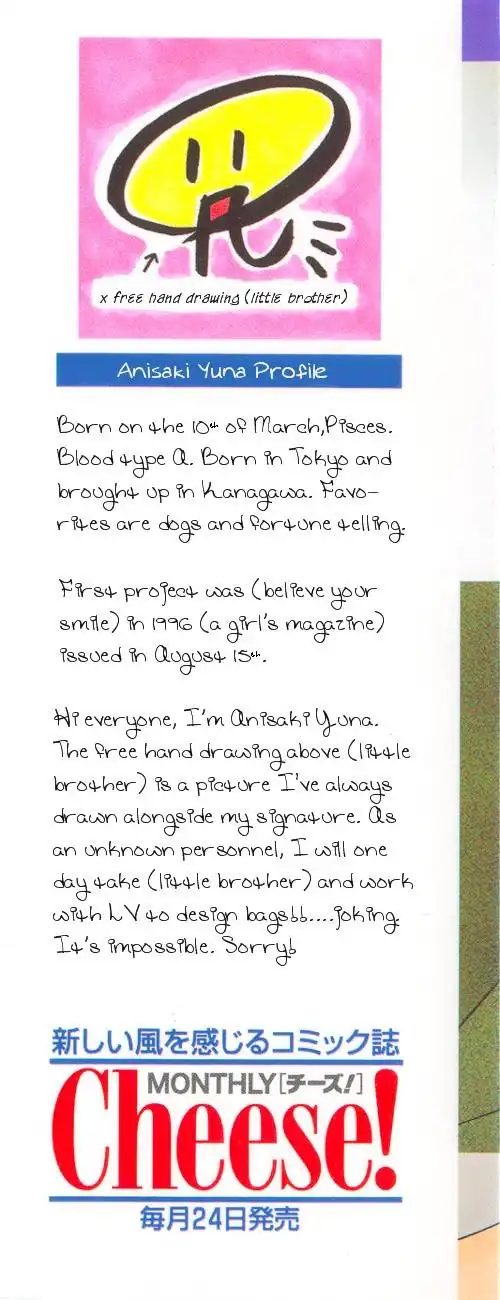 x free hand drawing (little brother)
Anisaki Yuna Profile
Born on the 10th of March,Pisces.
Blood type A. Born in Tokyo and
brought up in Kanagawa. Favo-
rites are dogs and fortune telling.
First project was (believe your
smile) in 1996 (a girl's magazine)
issued in August 15th.
Hi everyone, I'm Anisaki Yuna.
The free hand drawing above (little
brother) is a picture I've always
drawn alongside my signature. As
an unknown personnel, I will one
day take (little brother) and work
with LV to design bags!!....joking.
It's impossible. Sorry!
新しい風を感じるコミック誌
MONTHLY[チーズ!]
Cheese!
毎月24日発売